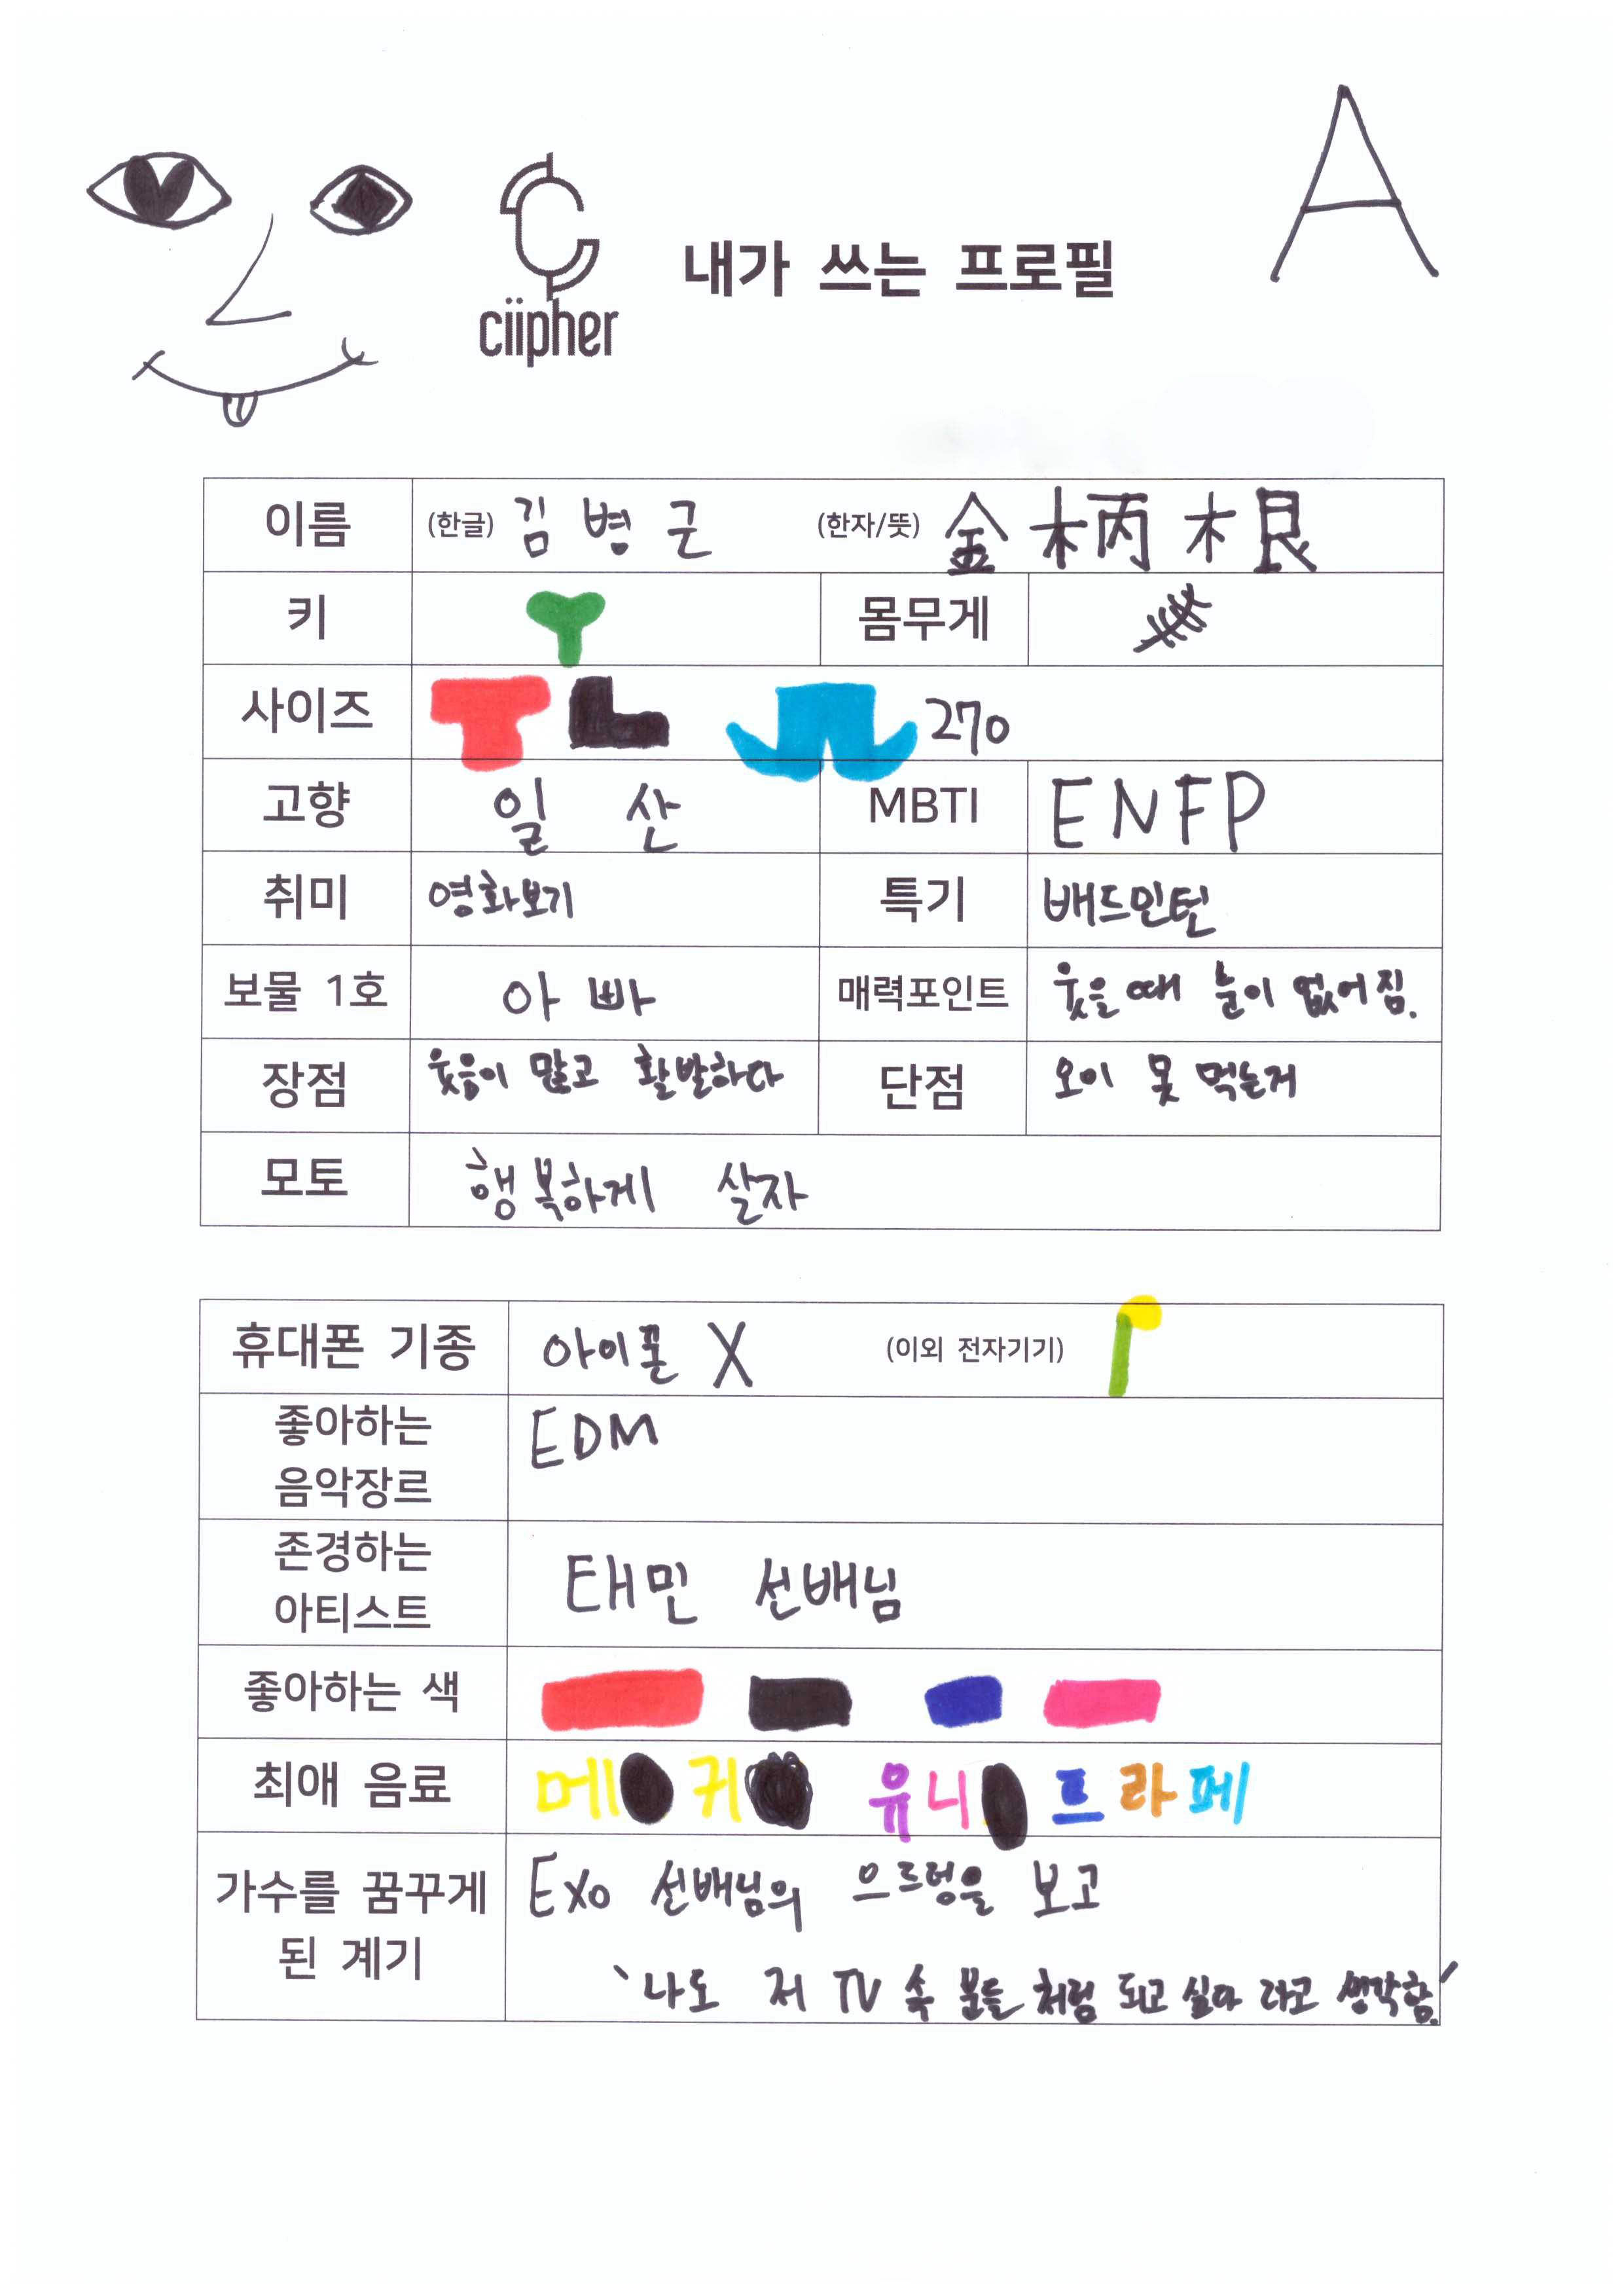 A
ciipher
내가 쓰는 프로필
이름 (한글) 김병근 (한자/뜻) 金柄根
키 몸무게
사이즈 T L 270
고향 일산 MBTI ENFP
취미 영화보기 특기 배드민턴
보물 1호 아빠 매력포인트 웃을때 눈이 없어짐.
장점 웃음이 많고 활발하다 단점 오이 못 먹는거
모토 행복하게 살자
휴대폰 기종 아이폰 X (이외 전자기기)
좋아하는
음악장르
EDM
존경하는
아티스트
태민 선배님
좋아하는 색
최애 음료 메 키 유니 프라페
가수를 꿈꾸게
된 계기
Exo 선배님의 으르렁을 보고
'나도 저 TV 속 분들 처럼 되고 싶다 라고 생각함.'